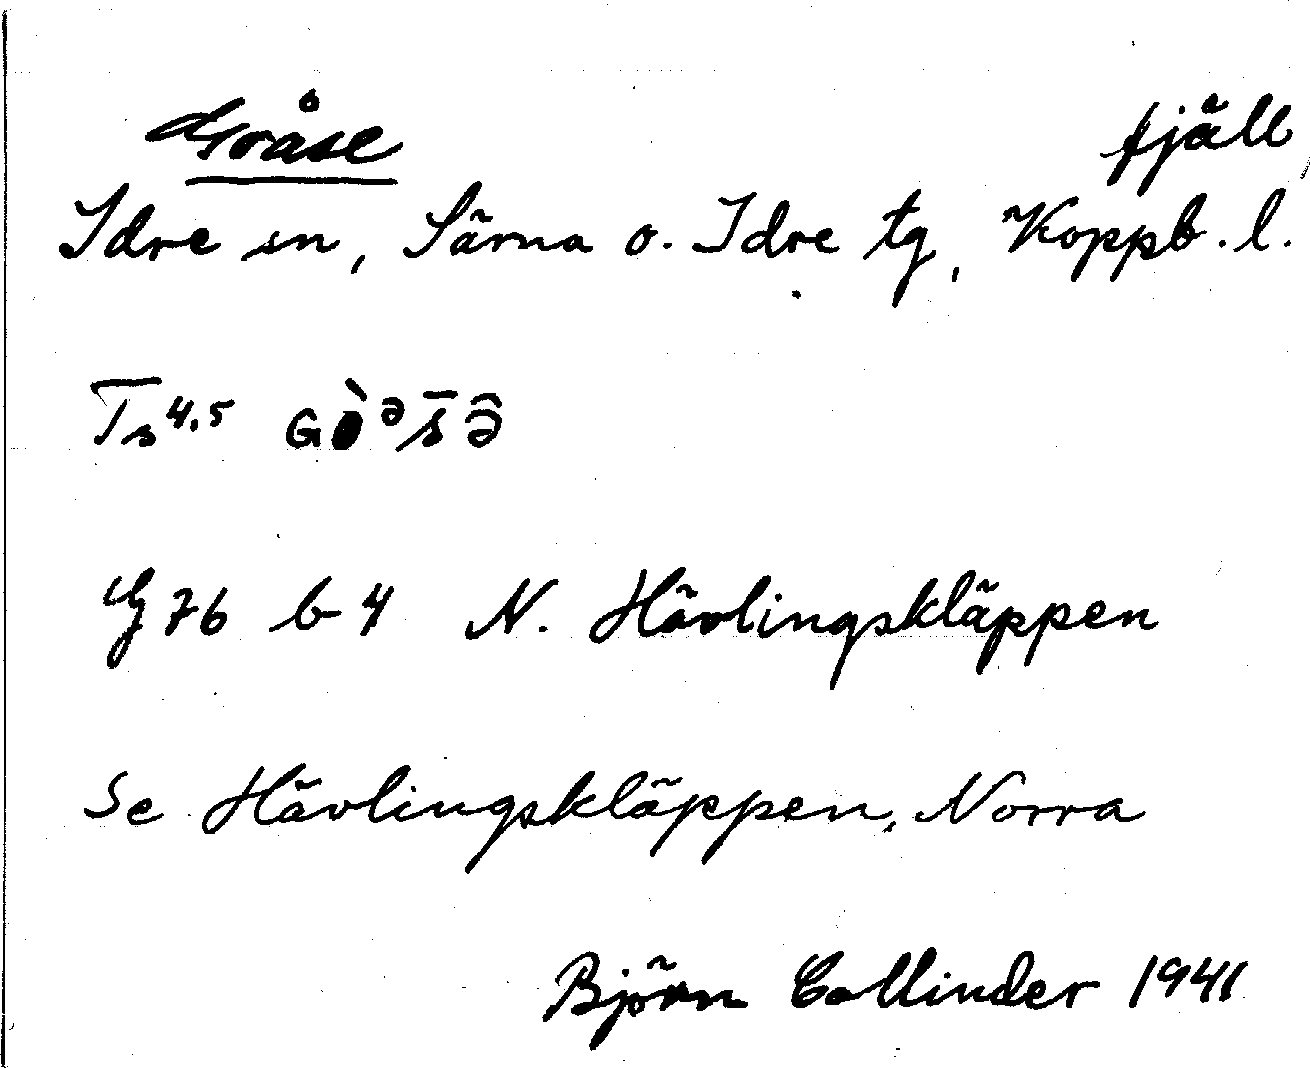 Gråse fjäll
Idre sn, Särna o. Idre tg, Koppb. l.
Ts 4.5
G 76 b 4 N. Hävlingskläppen
Se Hävlingskläppen, Norra
Björn Collinder 1941